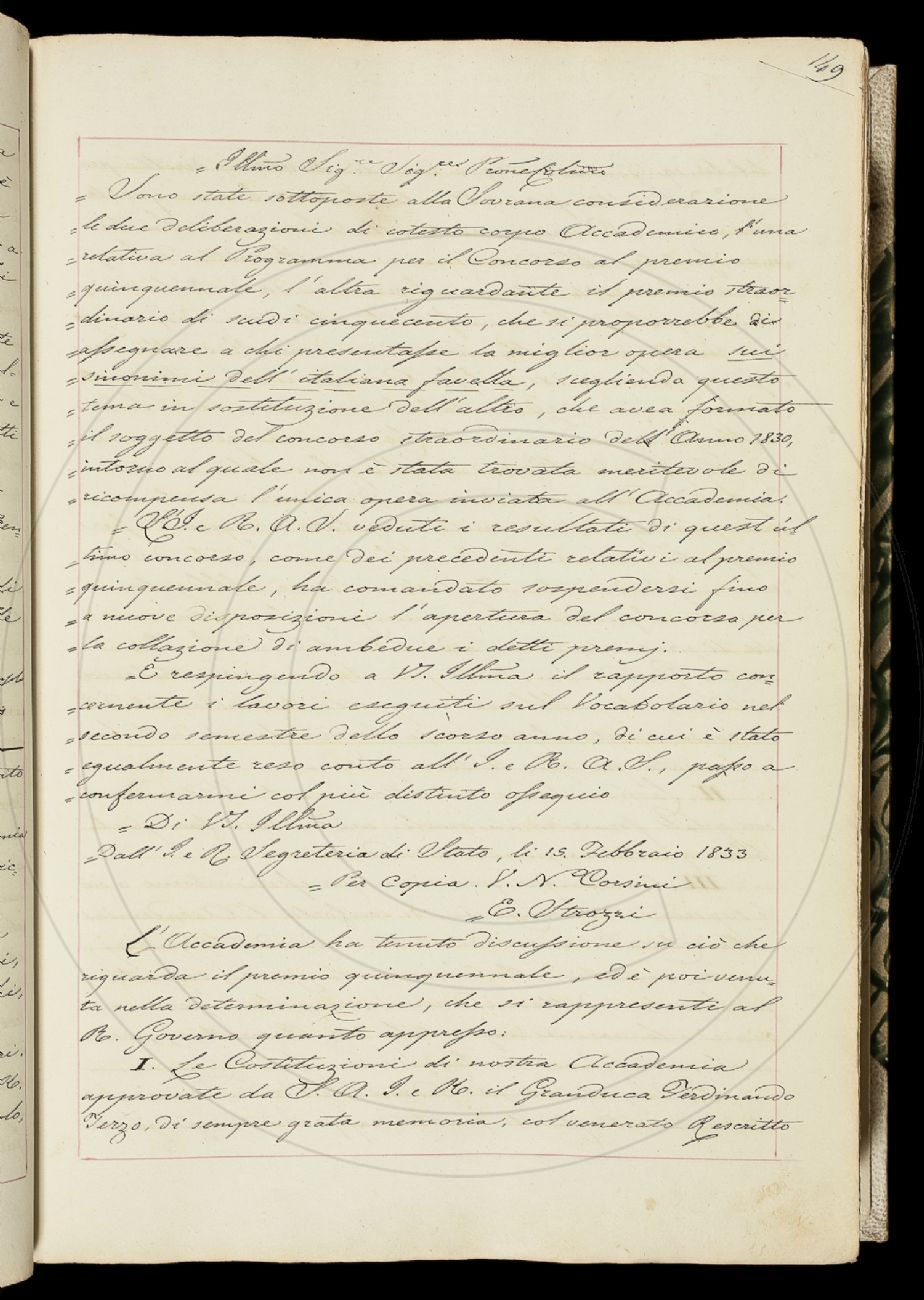 149
= Illmo Sig.re Sig.res Prone Colmo
= Sono state sottoposte alla Sovrana considerazione
= le due deliberazioni di cotesto corpo Accademico, l'una
= relativa al Programma per il Concorso al premio
= quinquennale, l'altra riguardante il premio straor=
= dinario di scudi cinquecento, che si proporrebbe di
= assegnare a chi presentasse la miglior opera sui
= sinonimi dell'italiana favella, scegliendo questo
= tema in sostituzione dell'altro, che avea formato
= il soggetto del concorso straordinario dell'Anno 1830,
= intorno al quale non è stata trovata meritevole di
= ricompensa l'unica opera inviata all'Accademia.
= L'I. e R. A. S. veduti i resultati di quest'ul=
= timo concorso, come dei precedenti relativi al premio
= quinquennale, ha comandato sospendersi fino
= a nuove disposizioni l'apertura del concorso per
= la collazione di ambedue i detti premj.
= E respingendo a VS. Illma il rapporto con=
= cernente i lavori eseguiti sul Vocabolario nel
= secondo semestre dello scorso anno, di cui è stato
= egualmente reso conto all'I. e R. A. S., passo a
= confermarmi col più distinto ossequio
= Di VS. Illma
= Dall'I. e R. Segreteria di Stato, li 13. Febbraio 1833
= Per Copia. V. N. Corsini
= E. Strozzi
L'Accademia ha tenuto discussione su ciò che
riguarda il premio quinquennale, ed è poi venu=
ta nella determinazione, che si rappresenti al
R. Governo quanto appresso:
I. Le Costituzioni di nostra Accademia
approvate da S. A. I. e R. il Granduca Ferdinando
Terzo, di sempre grata memoria, col venerato Rescritto